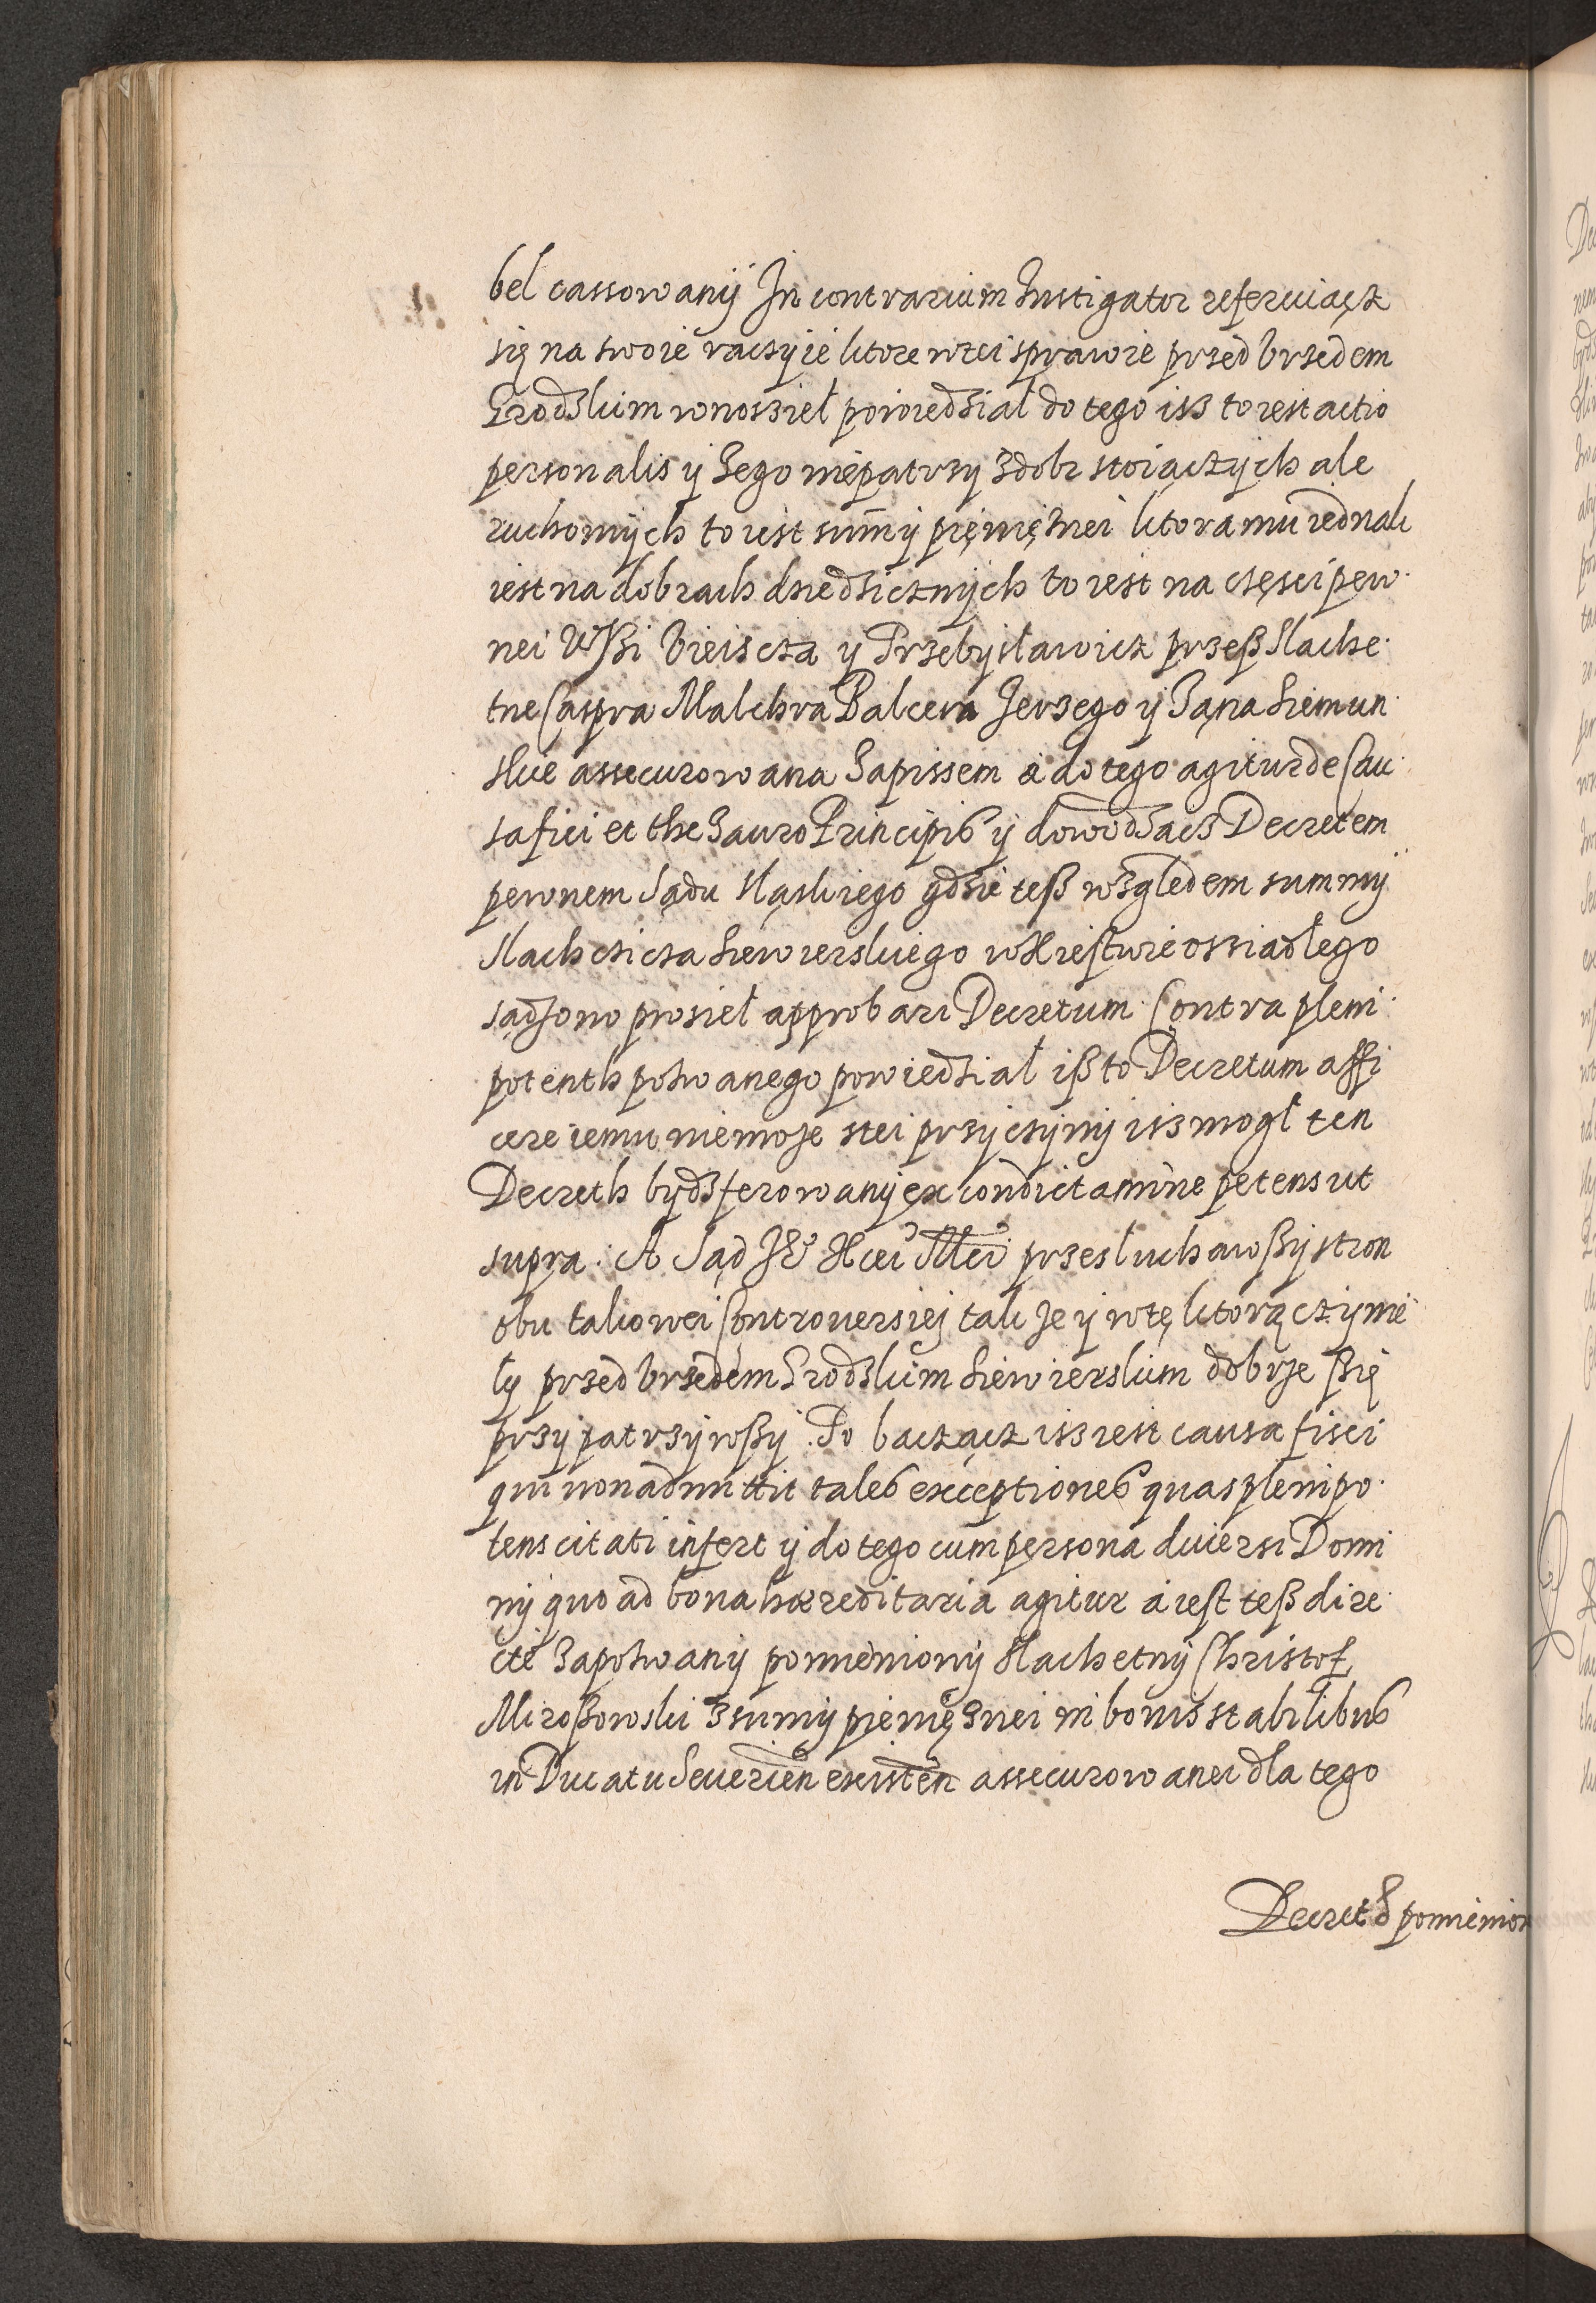 bel cassowanÿ In contrarium Instigator referuiącz
się na swoie racsyie ktore w tei sprawie przed Vrzedem
Grodzkim wnosziel powiedzial do tego isz to iest actio
personalis ÿ Zego niepatrzy z dobr stoiączÿch ale
ruchomÿch to iest sum̃ÿ pięnięznei ktora mu iednak
iest na dobrach dziedzicznÿch to iest na częsci pew
nei Wßi Vieiscza ÿ Przebÿsławicz przeß Slache
tne Caspra Malchra Balcera Jerzego ÿ Jana Siemun
skie assecurowana Zapissem a do tego agitur de Cau
sa fisci et thesauro Principis ÿ dowodzacz Decretem
pewnem Sądu Sląskiego gdzie teß wzgledem summÿ
Slachcicza Siewierskiego w Xięstwie ossiadłego
sądzono prosiel approbari Decretum. Contra pleni
potenth pozwanego powiedzial iß to Decretum affi
cere iemu niemoze s tei przÿczÿnÿ isz mogł ten
Decreth bÿdz ferowanÿ ex condictamine petens ut
supra. A Sąd JE Xcei Mci przesluchawßÿ stron
obu takowei Controuersiej tak ze ÿ w tę ktorą czÿnie
lÿ przed Vrzedem Grodzkim Siewierskim dobrze ßię
przÿpatrzÿwßÿ. Po bacząz isz iest causa fisci
qui non admittit tales exceptiones quas plenipo
tens citati infert ÿ do tego cum persona diuersi Domi
nÿ quo ad bona hæreditaria agitur a iest teß dire
cte Zapozwanÿ pomienionÿ Slachetnÿ Christof
Miroßowski z sumÿ pienięznei in bonis stabilibus
in Ducatu Seuerien̄ existen̄ assecurowanei dla tego
Decret pomienion